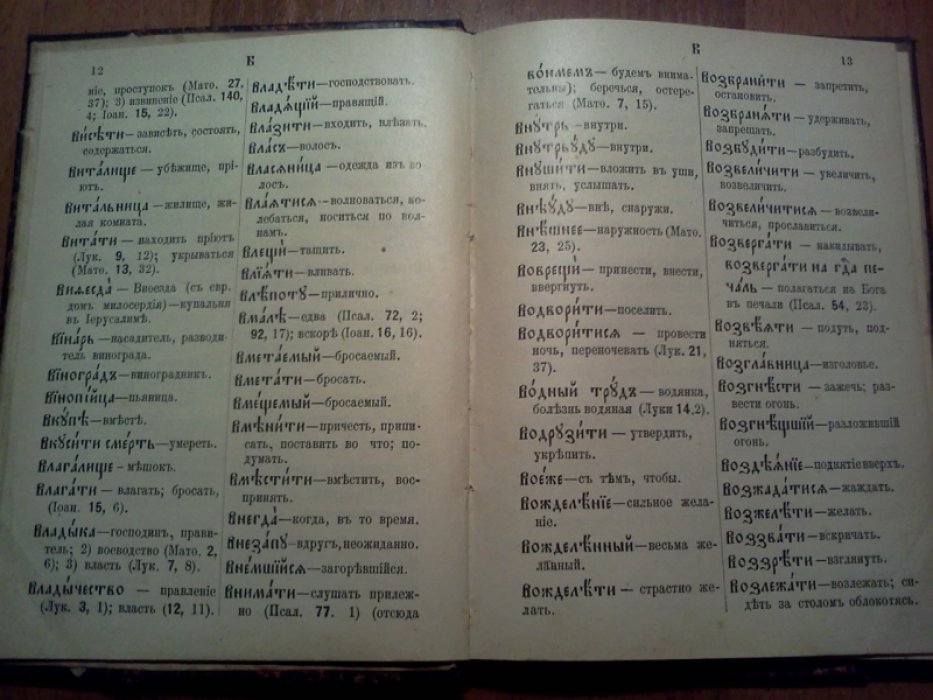 12
В
ніе, проступокъ (Матѳ. 27,
37); 3) извиненіе (Псал. 140,
4; Іоан. 15, 22).
Висѣти—зависѣть, состоять,
содержаться.
Вита́лище — убѣжище, прі-
ютъ.
Вита́льница — жилище, жи-
лая комната.
Вита́ти — находить пріютъ
(Лук. 9, 12); укрываться
(Матѳ. 13, 32).
Виѳесда̀ — Виѳезда (съ евр.
домъ милосердія)—купальня
въ Іерусалимѣ.
Віна́рь—насадитель, разводи-
тель винограда.
Віногра́дъ—виноградникъ.
Вінопі́йца—пьяница.
Вкꙋ́пѣ—вмѣстѣ.
Вкꙋси́ти сме́рть—умереть.
Влага́лище – мѣшокъ.
Влага́ти — влагать; бросать,
(Іоан. 15, 6).
Влады́ка—господинъ, прави-
тель; 2) воеводство (Матѳ. 2,
6); 3) власть (Лук. 7, 8).
Влады́чество — правленіе
(Лук. 3, 1); власть (12, 11).
Владѣ́ти—господствовать.
Владѧ́щій—правящій.
Вла́зити—входить, влѣзать.
Вла́съ—волосъ.
Власѧни́ца —одежда изъ во
лосъ.
Влаѧ́тисѧ—волноваться, ко-
лебаться, носиться по вол-
намъ.
Влещѝ—тащить.
Влїѧ́ти—вливать.
Влѣ́потꙋ—прилично.
Вма́лѣ—едва (Псал. 72, 2;
92, 17); вскорѣ (Іоан. 16, 16).
Вмета́емый—бросаемый.
Вмета́ти—бросать.
Вме́щемый—бросаемый.
Вмѣни́ти—причесть, припи-
сать, поставить во что; по-
думать.
Вмѣсти́ти—вмѣстить, вос-
принять.
Внегда̀—когда, въ то время.
Внеза́пꙋ—вдругъ, неожиданно.
Вне́мшійсѧ—загорѣвшійся.
Внима́ти—слушать прилеж-
но (Псал. 77. 1) (отсюда
В
13
во́нмемъ— будемъ внима-
тельны); беречься, остере-
гаться (Матѳ. 7, 15).
Внꙋ́трь—внутри.
Внꙋтрьꙋ́дꙋ—внутри.
Внꙋши́ти—вложить въ уши,
внять, услышать.
Внѣꙋ́дꙋ—внѣ, снаружи.
Внѣ́шнее—наружность (Матѳ.
23, 25).
Воврещѝ — принести, внести,
ввергнуть.
Водвори́ти—поселить.
Водвори́тисѧ — провести
ночь, переночевать (Лук. 21,
37).
Во́дный трꙋ́дъ — водянка,
болѣзнь водяная (Луки 14,2).
Водрꙋзи́ти — утвердить,
укрѣпить.
Вое́же—съ тѣмъ, чтобы.
Вожделѣ́ніе—сильное жела-
ніе.
Вожделѣ́нный—весьма же-
ланный.
Вожделѣ́ти — страстно же-
лать.
Возбрани́ти — запретить,
остановить.
Возбранѧ́ти — удерживать,
запрещать.
Возбꙋди́ти—разбудить.
Возвели́чити — увеличить,
возвеличить.
Возвели́читисѧ — возвели-
читься, прославиться.
Возверга́ти — накидывать,
возверга́ти на гд҇а пе-
ча́ль — полагаться на Бога
въ печали (Псал. 54, 23).
Возвѣ́ѧти — подуть, под-
няться.
Возгла́вница—изголовье.
Возгнѣ́сти — зажечь; раз-
вести огонь.
Возгнѣ́щшій—разложившій
огонь.
Воздѣ́ѧніе—поднятіе вверхъ.
Возжада́тисѧ—жаждать.
Возжелѣ́ти—желать.
Воззва́ти—вскричать.
Воззрѣ́ти—взглянуть.
Возлежа́ти—возлежать; си-
дѣть за столомъ облокотясь.